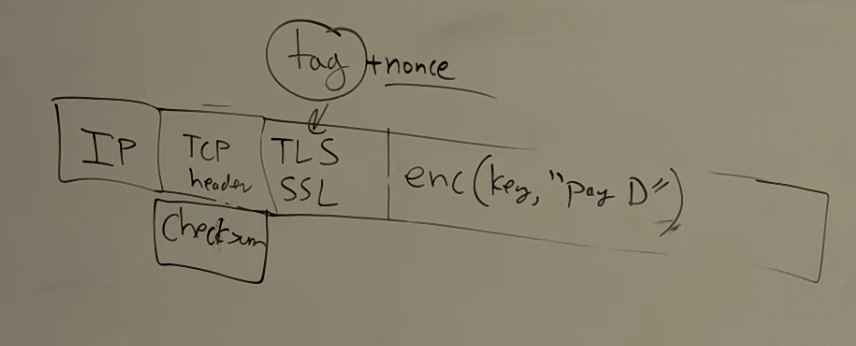 tag + nonce
IP
TCP
header
TLS
SSL
enc(key, "pay D")
Checksum